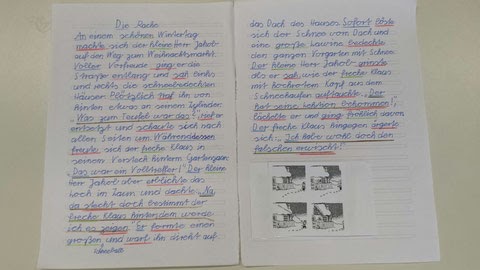 Die Rache
An einem schönen Wintertag
machte sich der kleine Herr Jakob
auf den Weg zum Weihnachtsmarkt.
Voller Vorfreude ging er die
Straße entlang und sah links
und rechts die schneebedeckten
Häuser. Plötzlich traf ihn von
hinten etwas an seinem Zylinder.
„Was zum Teufel war das?", rief er
entsetzt und schaute sich nach
allen Seiten um. Währenddessen
freute sich der freche Klaus in
seinem Versteck hinterm Gartenzaun:
„Das war ein Volltreffer!" Der kleine
Herr Jakob aber erblickte das
Loch im Zaun und dachte: „Na,
da steckt doch bestimmt der
freche Klaus hinter, dem werde
ich es zeigen." Er formte einen
großen und warf ihn direkt auf
Schneeball
das Dach des Hauses. Sofort löste
sich der Schnee vom Dach und
eine große Lawine bedeckte
den ganzen Vorgarten mit Schnee.
Der kleine Herr Jakob grinste
als er sah, wie der freche Klaus
mit hochrotem Kopf aus dem
Schneehaufen auftauchte. „Der
hat seine Lektion bekommen!",
lächelte er und ging fröhlich davon.
Der freche Klaus hingegen ärgerte
sich: „Ich habe wohl doch den
falschen erwischt!"